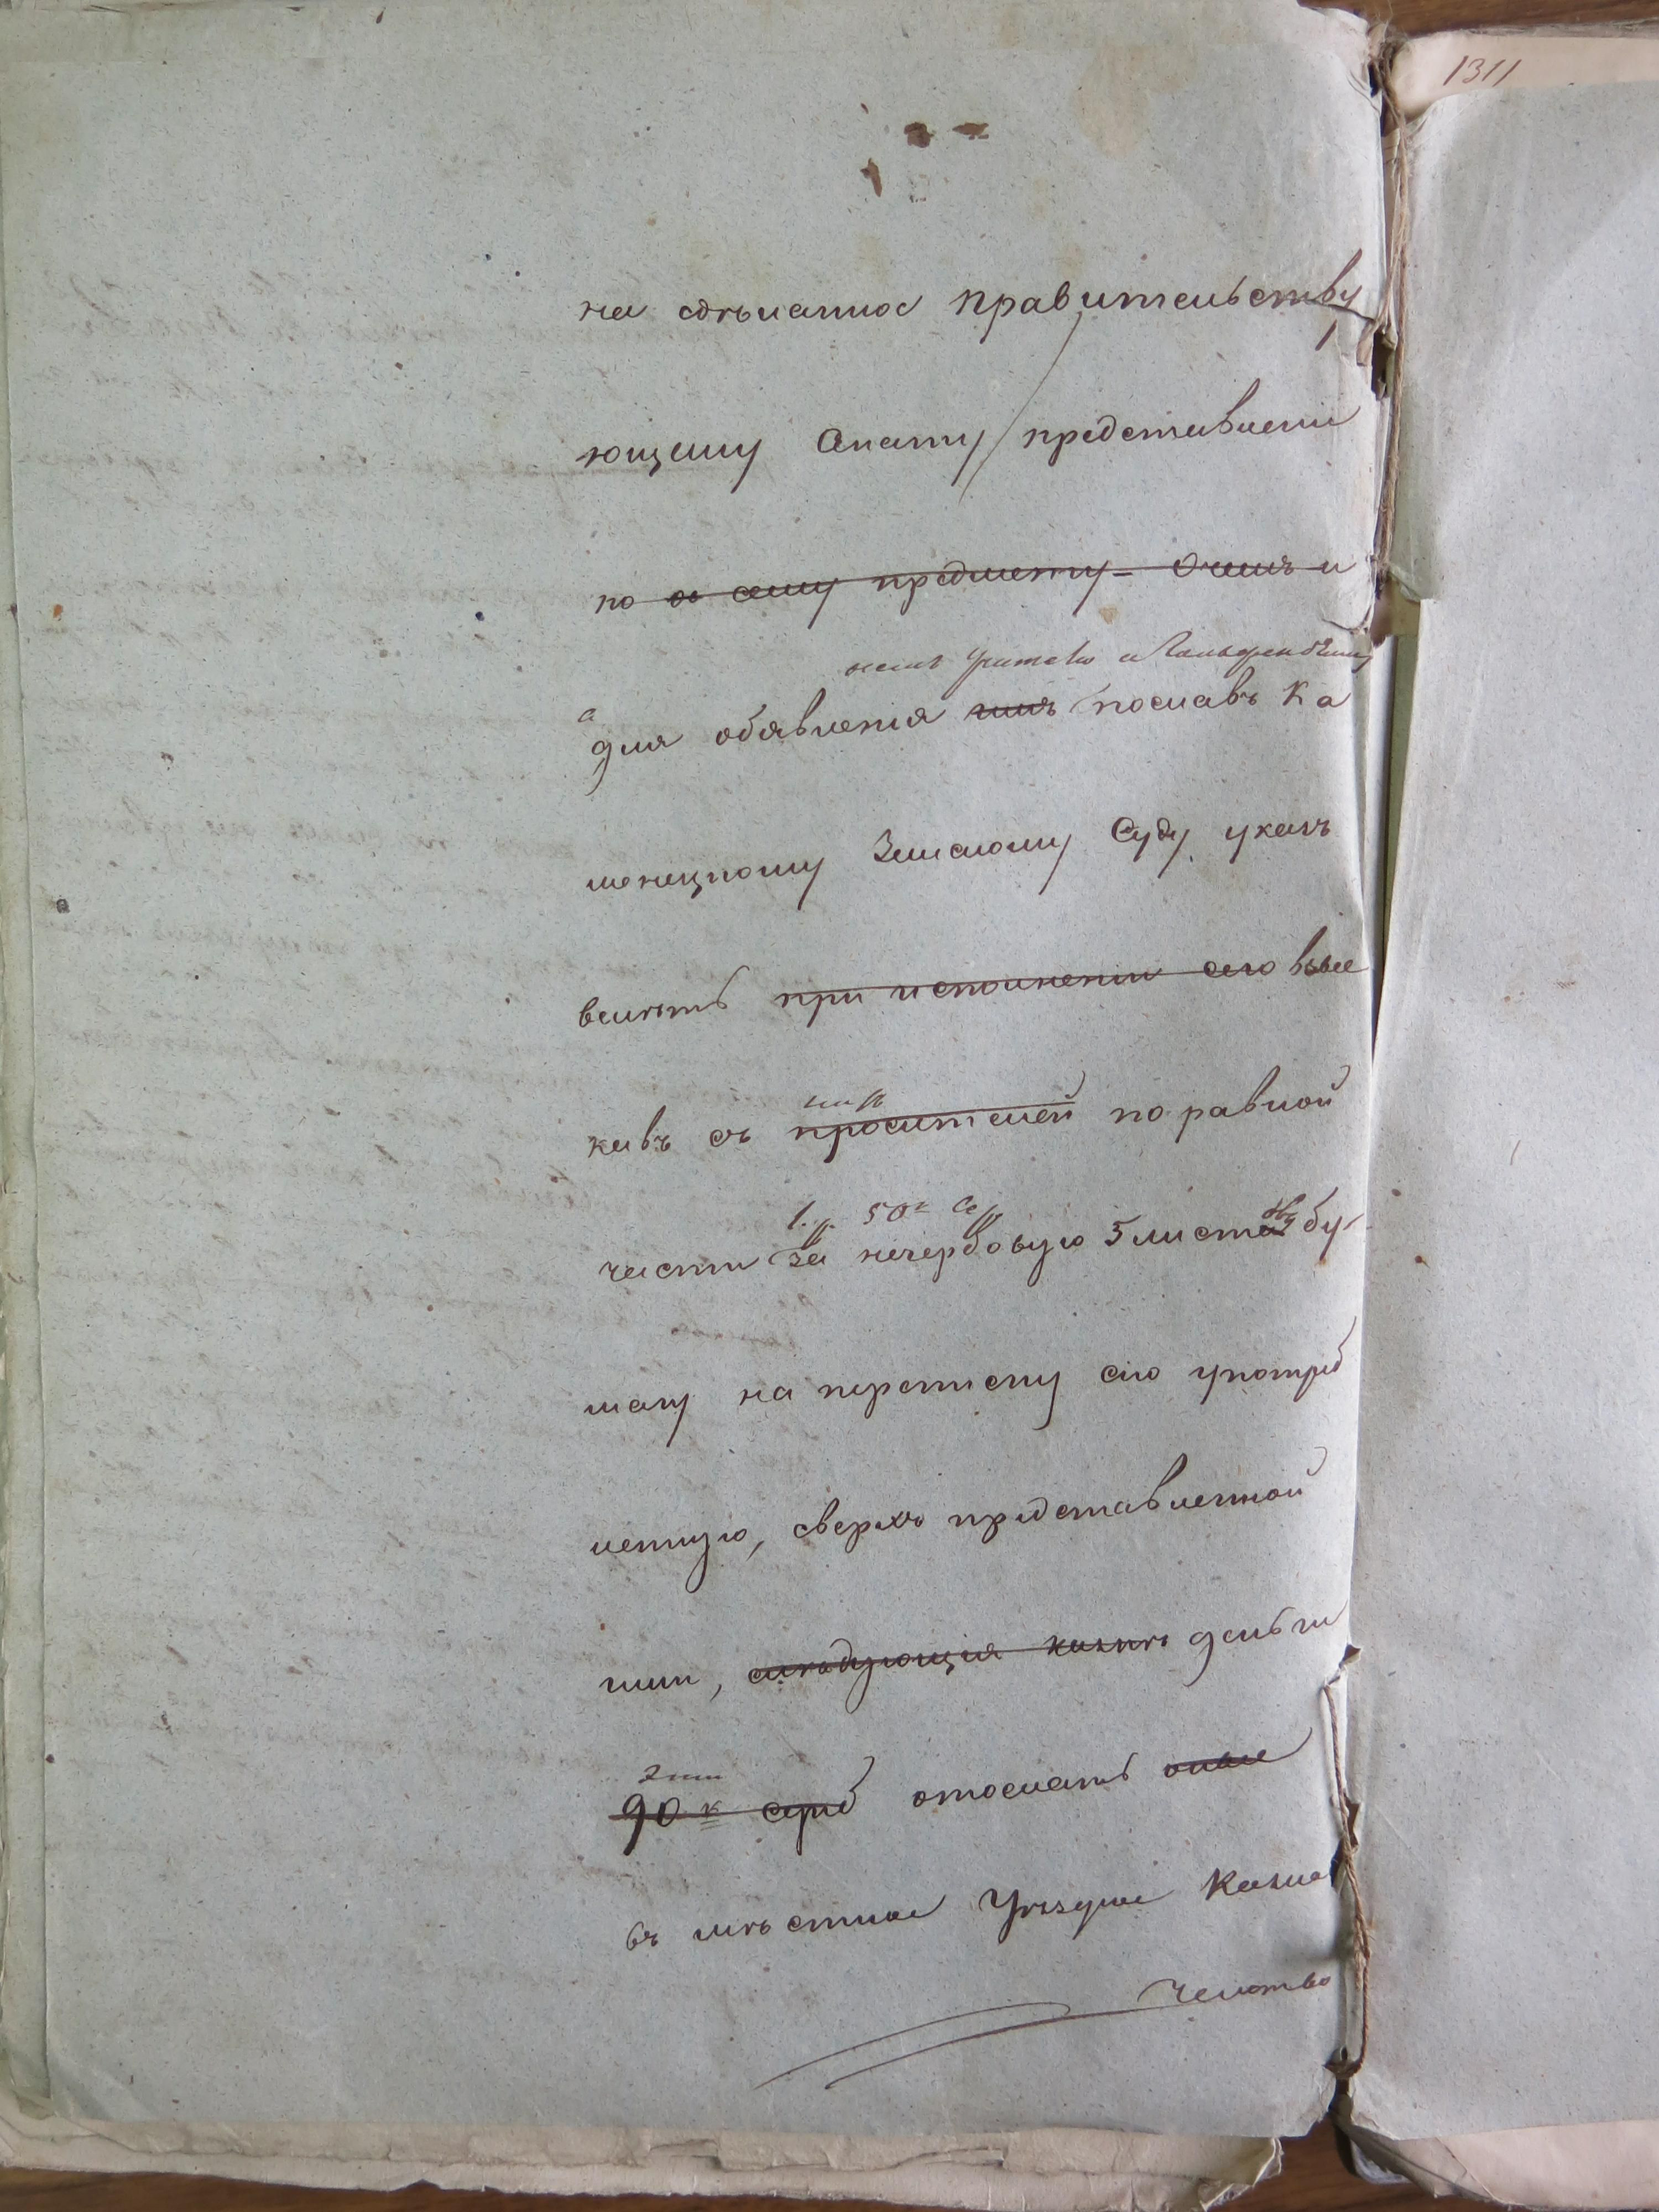 1311
на сдѣланное правительству
ющему Сенату представленіе
по се сему предмету – О чемъ и
семъ Гритско и
а для обявленія имъ пославъ Ка
менецкому Земскому Суду указъ
велѣть при исполненіи сего взыс
кавъ съ просителей по равной
нихъ
1 р. 50 к Сер
части за негербовую 5 листовую бу
магу на переписку сію употреб
ленную, сверхъ представленной
ими, слѣдующія казнѣ деньги
Эти
90 к сереб отослать оные
въ мѣстное Уѣздное Казна
чейство